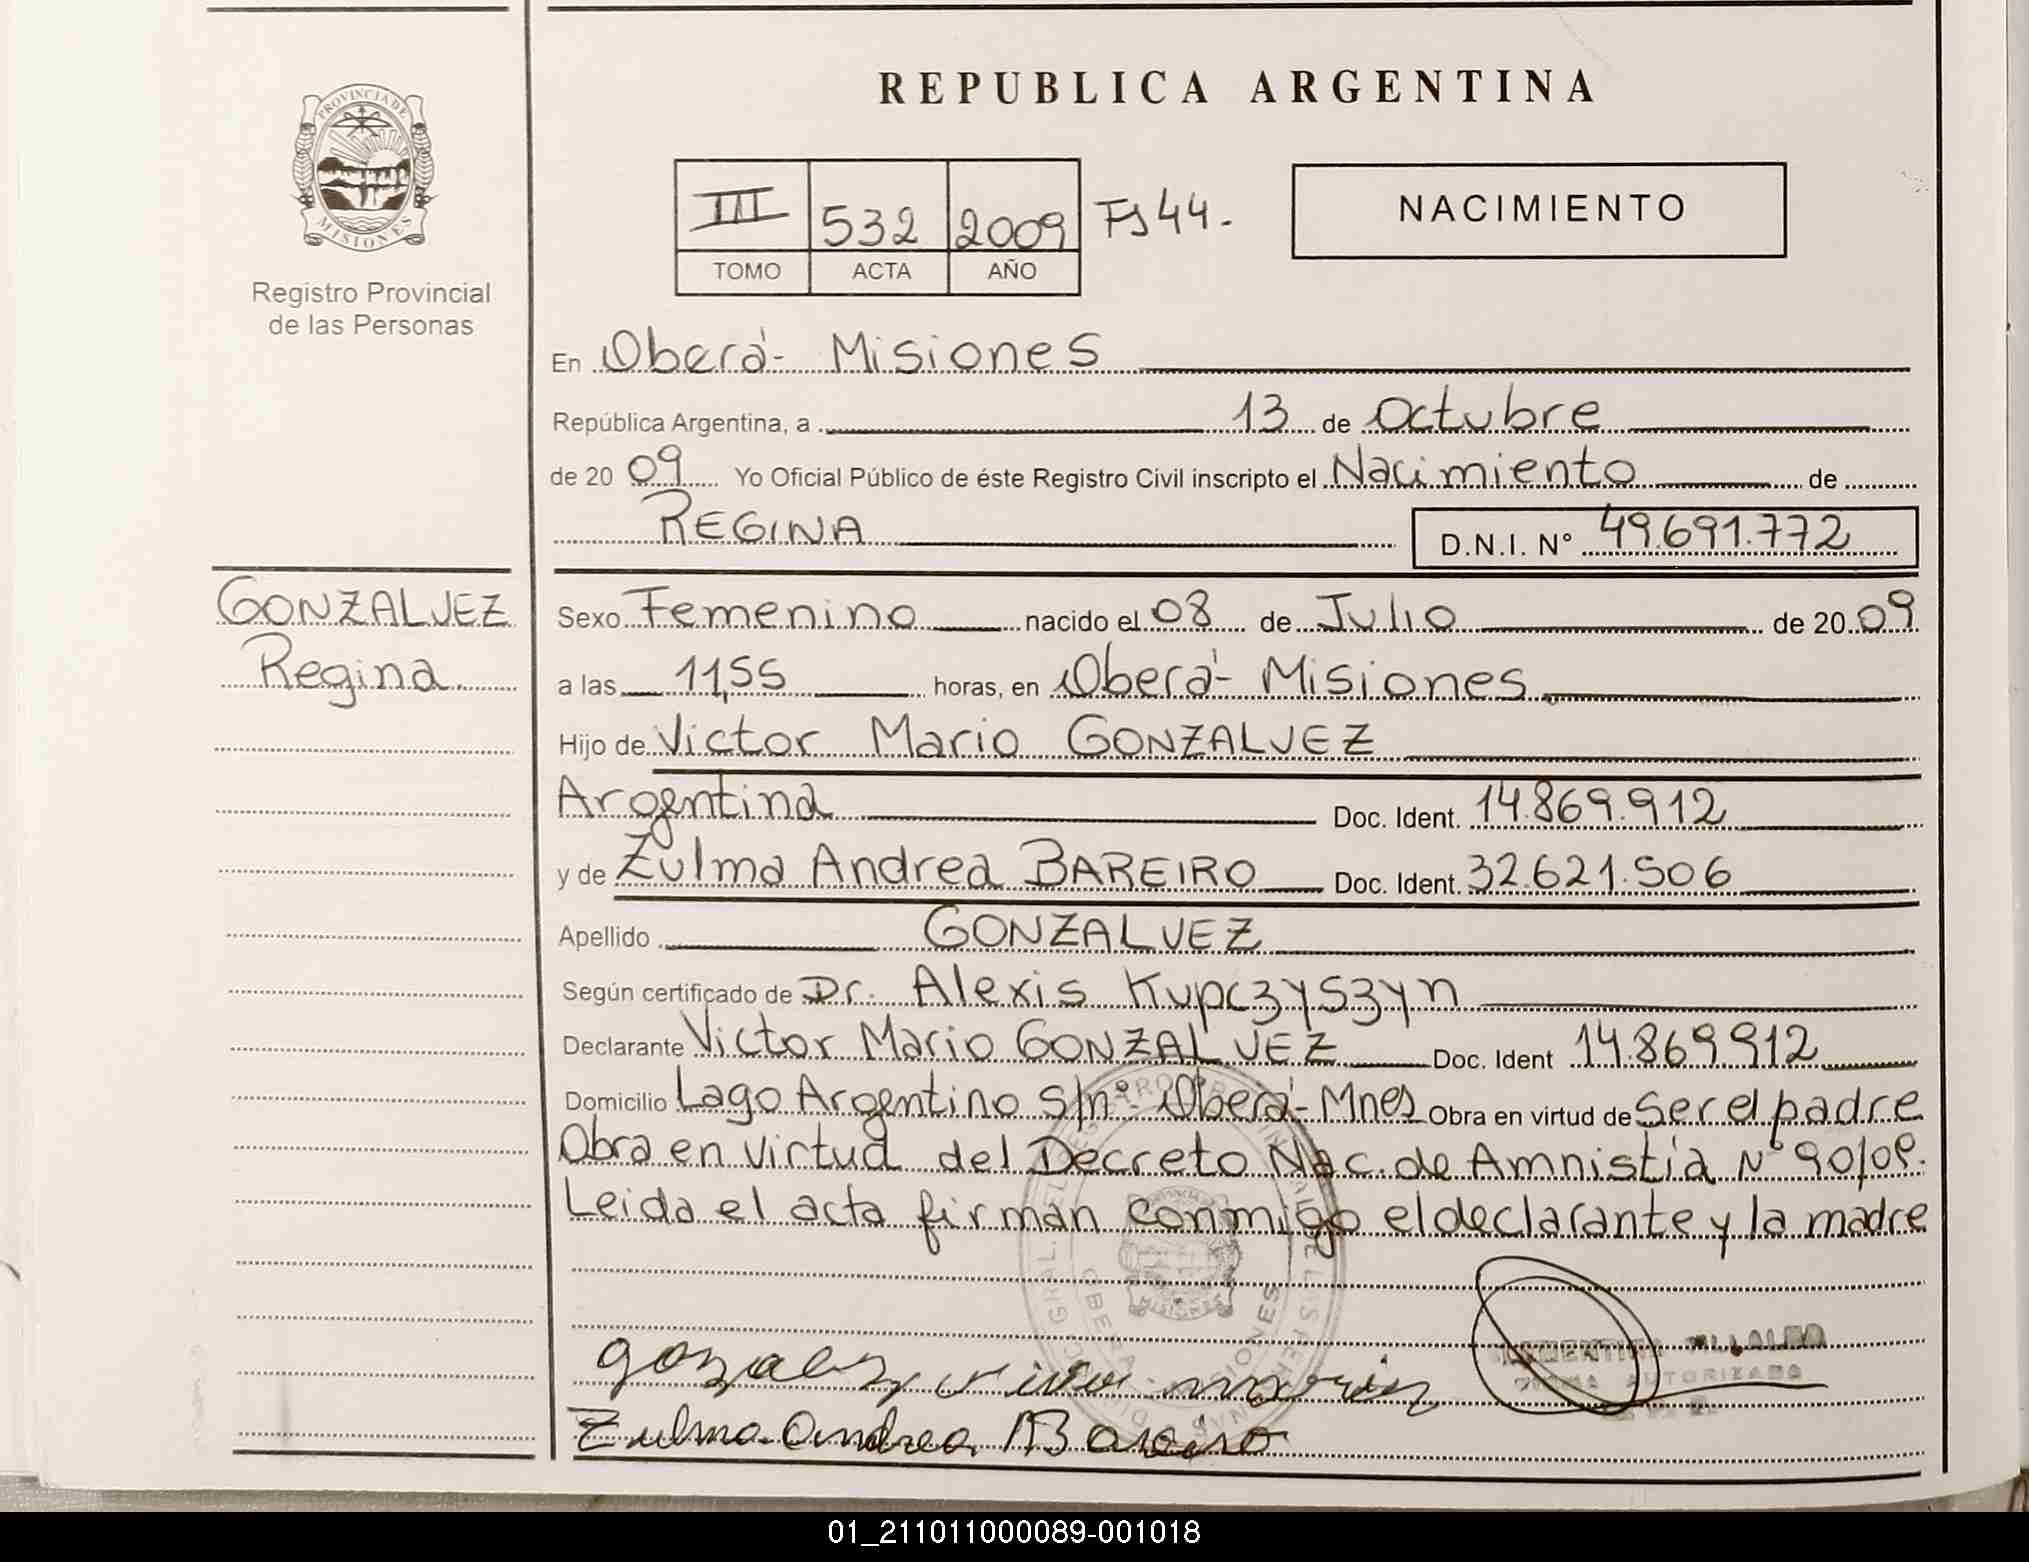 REPUBLICA ARGENTINA
PROVINCIA DE
MISIONES
Registro Provincial
de las Personas
III 532 2009 FS 44.
TOMO ACTA AÑO
NACIMIENTO
En Oberá - Misiones
República Argentina, a 13 de Octubre
de 20 09 Yo Oficial Público de éste Registro Civil inscripto el Nacimiento de
REGINA D.N.I. N° 49.691.772
GONZALVEZ
Regina
Sexo Femenino nacido el 08 de Julio de 20 09
a las 11,55 horas, en Oberá - Misiones
Hijo de Victor Mario GONZALVEZ
Argentina Doc. Ident. 14.869.912
y de Zulma Andrea BAREIRO Doc. Ident. 32.621.506
Apellido GONZALVEZ
Según certificado de Dr. Alexis Kupczyszyn
Declarante Victor Mario GONZALVEZ Doc. Ident 14.869.912
Domicilio Lago Argentino s/nº - Oberá - Mnes Obra en virtud de Ser el padre
Obra en virtud del Decreto Nac. de Amnistia N° 90/09.
Leida el acta firman conmigo el declarante y la madre
AUTORIZADA
Zulma Andrea Bareiro
01_211011000089-001018